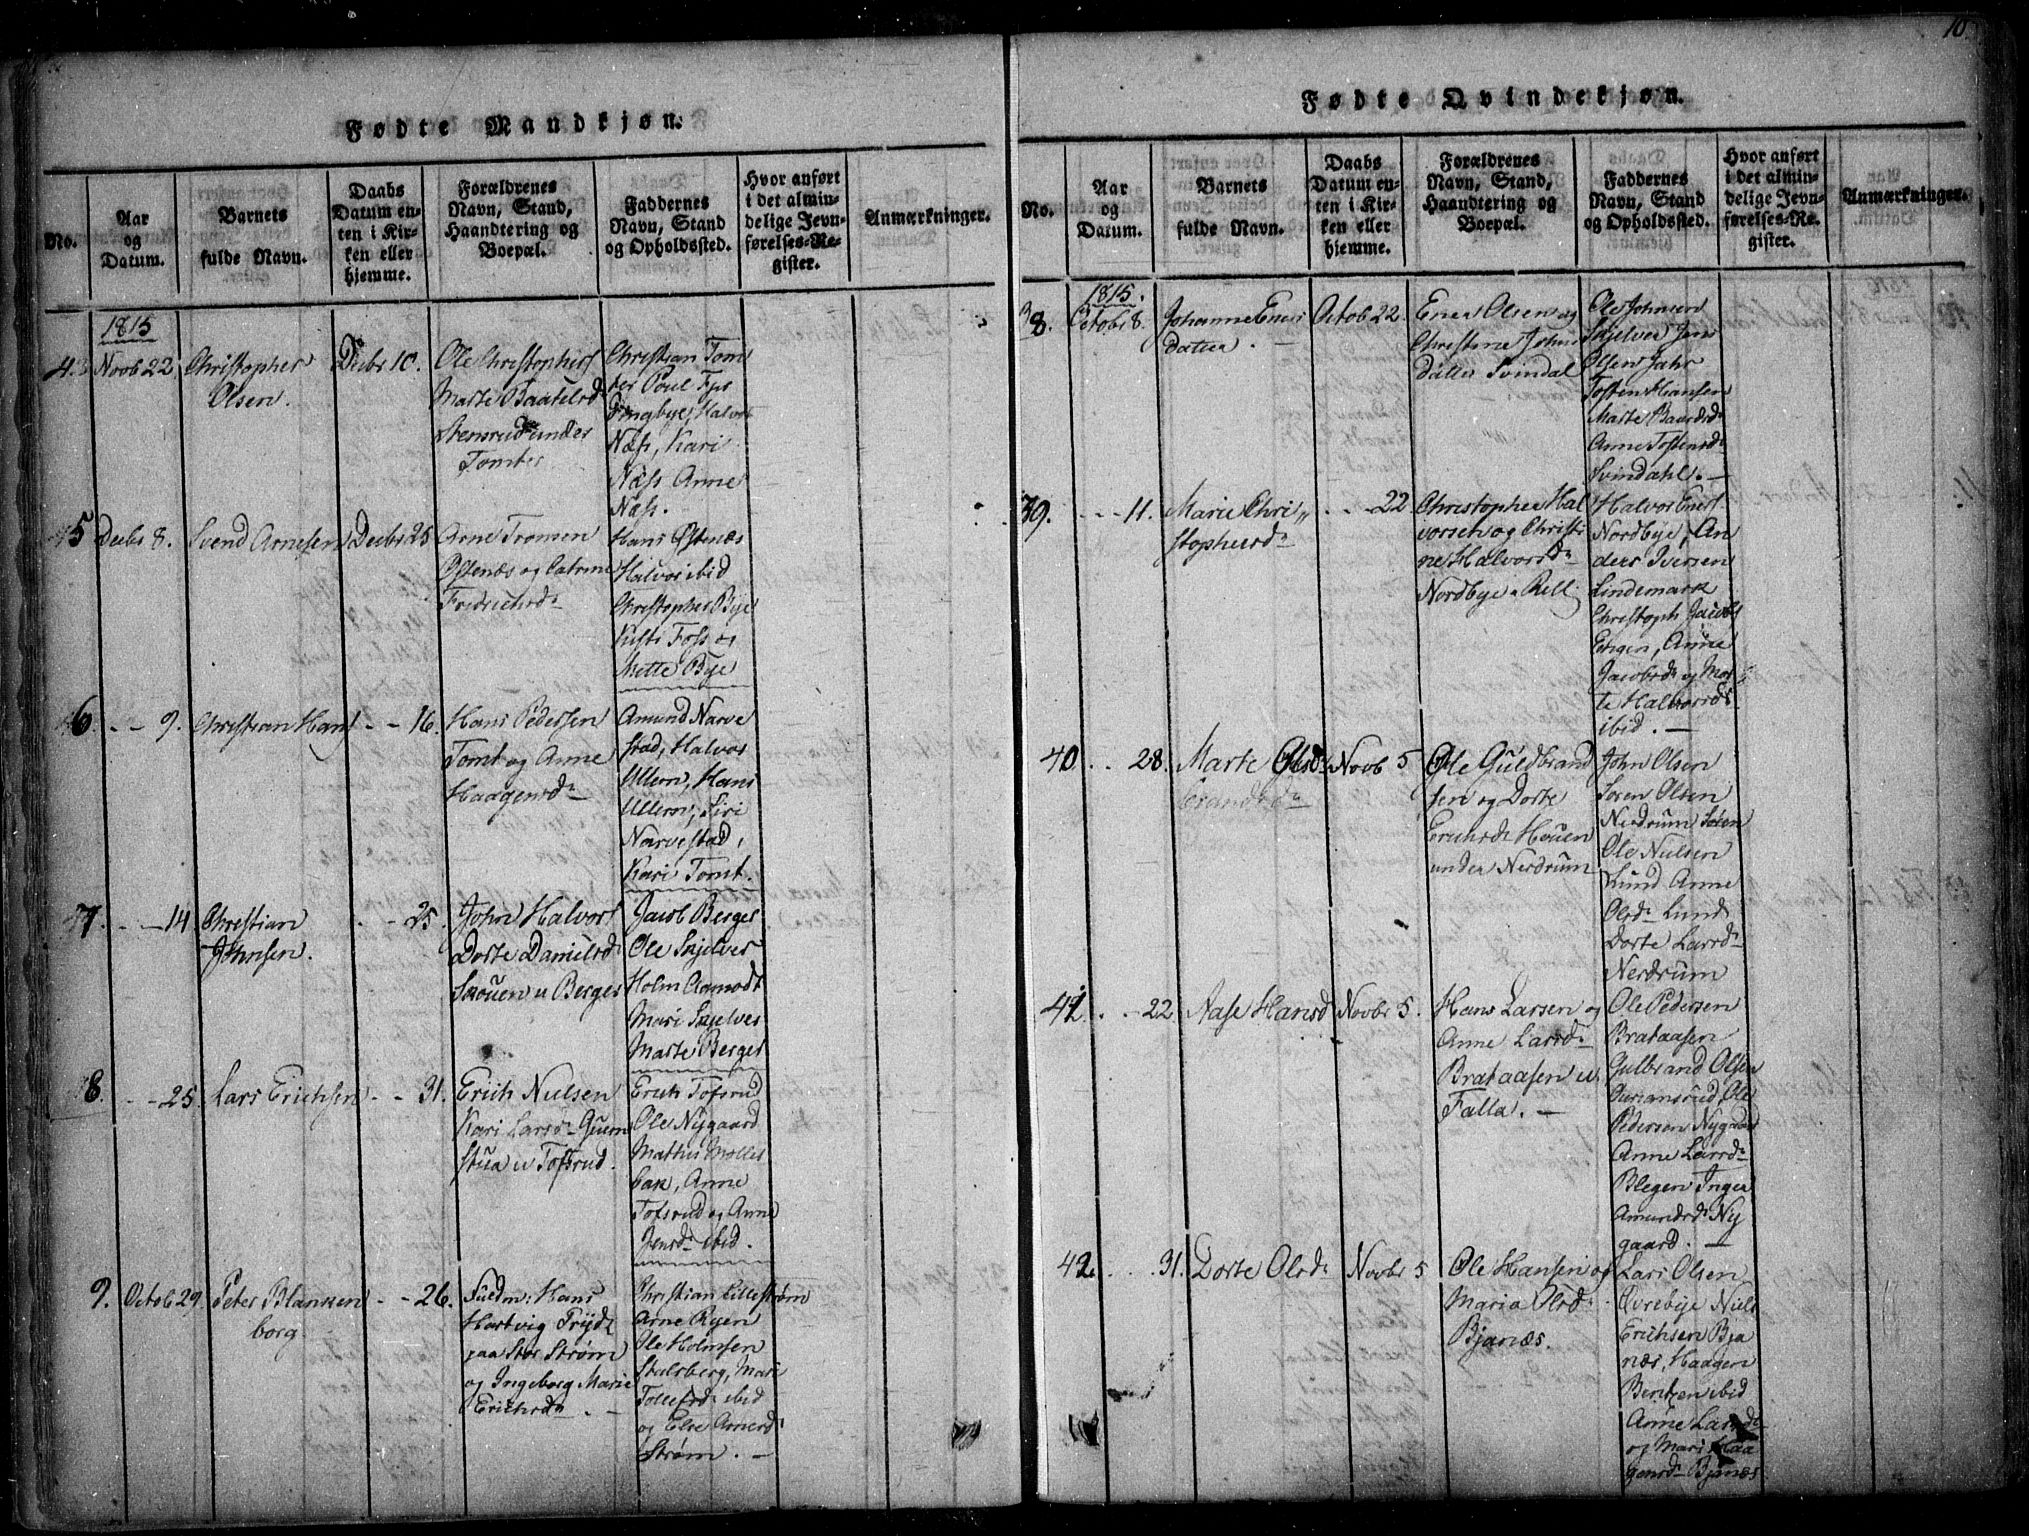 10.
Fødte Mandkjøn.
No.
Aar
og
Datum.
Barnets
fulde Navn.
Daabs
Datum en-
ten i Kir-
ken eller
hjemme.
Forældrenes
Navn, Stand,
Haandtering og
Boepæl.
Faddernes
Navn, Stand
og Opholdssted.
Hvor anført
i det almin-
delige Jevn-
førelses-Re-
gister.
Anmærkninger.
1815
Novb 22
Christopher
Olsen.
Decbr 10.
Ole Christophers
Marte Baarelsd
Stensrud under
Tomter
Christian Tom
ter Poul Fyr
Halvor
Næss, Kari
Næss Anne
Næss.
5
Decbr 8.
Svend Arnesen
Decbr 25
Arne Tronsen
Østenæs og Catrine
Fredrichsd
Hans Østenæs
Halvor ibid
Christopher Bye
Foss og
Mette Bye
6
- - 9.
Christian Hans
- - 16.
Hans Pedersen
Tomt og Anne
Haagensd
Amund Narve
stad, Halvor
Ullern, Hans
Ullern, Siri
Narvestad,
Kari Tomt.
7
- - 14
Christian
Johnsen.
- - 25.
John Halvors
Dorte Danielsd
Skouen u Berger
Jacob Berger
Ole Skjelver
Holm Aamodt
Mari Skjelver
Marte Berger
8.
- - 25.
Lars Erichsen
- - 31.
Erich Nielsen
Kari Larsd
stua u Tofsrud.
Erich Tofsrud
Ole Nygaard
Mathis Møller
bak, Anne
Tofsrud og Anne
Jensd ibid.
9.
Octob 29.
Peter Blanken
borg
- - 26.
Hans
Hartvig Fryd
paa Stor Strøm
og Ingeborg Marie
Erichsd.
Christian Lillestrøm
Arne Ryen
Ole Holmsen
Stalsberg, Mari
ibid
og Else Arnesd
Strøm. —
Fødte Qvindekjøn.
No.
Aar
og
Datum.
Barnets
fulde Navn.
Daabs
Datum en-
ten i Kir-
ken eller
hjemme.
Forældrenes
Navn, Stand,
Haandtering og
Boepæl.
Faddernes
Navn, Stand
og Opholdssted.
Hvor anført
i det almin-
delige Jevn-
førelses-Re-
gister.
Anmærkninger.
1815.
38.
Octobr 8.
Johanne Ener
datter. —
Octob 22.
Ener Olsen og
Christine Johns
datter Svindal
Ole Johnsen
Skjelver Jens
Olsen Jahr
Tosten Hansen
Marte Baardsd
Anne Tostensd
Svindahl. —
39.
- - 11.
Marie Chri
stophersd
- - 22
Christopher Hal
vorsen og Christi
ne Halvorsd
Nordbye
Halvor Eners
Nordbye, An
ders Iversen
Lindemark
Christoph Jacobs
Engen, Anne
Jacobsd og Mar
te Halvorsd
ibid. —
40.
- - 28.
Marte Olsd
Novb 5
Ole Guldbrand
sen og Dorte
Erichsd Houen
under Nerdrum
John Olsen
Soren Olsen
Nerdrum Soren
Ole Nielsen
Lund Anne
Olsd Lund
Dorte Larsd
Nerdrum
41.
- - 22
Aase Hansd
Novbr 5.
Hans Larsen og
Anne Larsd
Brataasen u
Falla. —
Ole Pedersen
Brataasen
Gulbrand Olsen
Ole
Pedersen Nygaard
Anne Larsd
Blegen Inger
Amundsd Ny
gaard. —
42.
- - 31.
Dorte Olsd
Novbr 5
Ole Hansen og
Maria Olsd
Bjanæs.
Lars Olsen
Øvrebye Niels
Erichsen Bja
næs, Haagen
Bentzen ibid
Anne Larsd
og Mari Haa
gensd Bjanæs